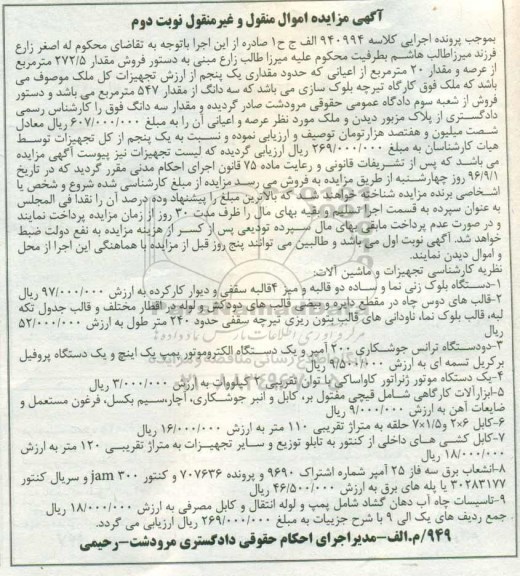 آگهی مزایده اموال منقول و غیرمنقول نوبت دوم
بموجب پرونده اجرایی کلاسه ۹۴۰۹۹۴ الف ج ح۱ صادره از این اجرا باتوجه به تقاضای محکوم له اصغر زارع
فرزند میرزاطالب هاشم بطرفیت محکوم علیه میرزا طالب زارع مبنی به دستور فروش مقدار ۲۷۲/۵ مترمربع
از عرصه و مقدار ۲۰ مترمربع از اعیانی که حدود مقداری یک پنجم از ارزش تجهیزات کل ملک موصوف می
باشد که ملک فوق کارگاه تیرچه بلوک سازی می باشد که سه دانگ از مقدار ۵۴۷ مترمربع می باشد و دستور
فروش از شعبه سوم دادگاه عمومی حقوقی مرودشت صادر گردیده و مقدار سه دانگ فوق را کارشناس رسمی
دادگستری از پلاک مزبور دیدن و ملک مورد نظر عرصه و اعیانی آن را به مبلغ ۶۰۷/۰۰۰/۰۰۰ ریال معادل
شصت میلیون و هفتصد هزارتومان توصیف و ارزیابی نموده و نسبت به یک پنجم از کل تجهیزات توسط
هیات کارشناسان به مبلغ ۲۶۹/۰۰۰/۰۰۰ ریال ارزیابی گردیده که لیست تجهیزات نیز پیوست آگهی مزایده
می باشد که پس از تشریفات قانونی و رعایت ماده ۷۵ قانون اجرای احکام مدنی مقرر گردید که در تاریخ
۹۶/۹/۱ روز چهارشنبه از طریق مزایده به فروش می رسد مزایده از مبلغ کارشناسی شده شروع و شخص یا
اشخاصی برنده مزایده شناخته خواهند شد که بالاترین مبلغ را پیشنهاد وده درصد آن را نقدا فی المجلس
به عنوان سپرده به قسمت اجرا تسلیم و بقیه بهای مال را ظرف مدت ۳۰ روز از زمان مزایده پرداخت نمایند
و در صورت عدم پرداخت مابقی بهای مال سپرده تودیعی پس از کسر از هزینه مزایده به نفع دولت ضبط
خواهد شد. آگهی نوبت اول می باشد و طالبین می توانند پنج روز قبل از مزایده با هماهنگی این اجرا از محل
و اموال دیدن نمایند.
نظریه کارشناسی تجهیزات و ماشین آلات:
۱-دستگاه بلوک زنی نما و ساده دو قالبه و میز ۴قالبه سقفی و دیوار کارکرده به ارزش ۹۷/۰۰۰/۰۰۰ ریال
۲-قالب های دوس چاه در مقطع دایره و بیضی قالب های دودکش و لوله در اقطار مختلف و قالب جدول تکه
لبه، قالب بلوک نما، ناودانی های قالب بتون ریزی تیرچه سقفی حدود ۲۴۰ متر طول به ارزش ۵۲/۰۰۰/۰۰۰
ریال
۳-دودستگاه ترانس جوشکاری ۳۰۰ آمپر و یک دستگاه الکتروموتور پمپ یک اینچ و یک دستگاه پروفیل
برکریل تسمه ای به ارزش ۹/۵۰۰/۰۰۰ ریال
۴-یک دستگاه موتور ژنراتور کاواساکی با توان تقریبی ۲ کیلووات به ارزش ۳/۰۰۰/۰۰۰ ریال
۵-ابزارآلات کارگاهی شامل قیچی مفتول بر، کابل و انبر جوشکاری، آچار،سیم بکسل، فرغون مستعمل و
ضایعات آهن به ارزش ۹/۰۰۰/۰۰۰ ریال
۶-کابل ۲×۶ و ۷×۱/۵ حلقه به متراژ تقریبی ۱۱۰ متر به ارزش ۱۶/۰۰۰/۰۰۰ ریال
۷-کابل کشی های داخلی از کنتور به تابلو توزیع و سایر تجهیزات به متراژ تقریبی ۱۲۰ متر به ارزش
۱۸/۰۰۰/۰۰۰ ریال
۸-انشعاب برق سه فاز ۲۵ آمپر شماره اشتراک ۹۶۹۰ و پرونده ۷۰۷۶۳۶ و کنتور jam ۳۰۰ و سریال کنتور
۳۰۲۸۳۱۷۷ با پله های برق به ارزش ۴۶/۵۰۰/۰۰۰ ریال
۹-تاسیسات چاه آب دهان گشاد شامل پمپ و لوله انتقال و کابل مصرفی به ارزش ۱۸/۰۰۰/۰۰۰ ریال
جمع ردیف های یک الی ۹ با شرح جزییات به مبلغ ۲۶۹/۰۰۰/۰۰۰ ریال ارزیابی می گردد.
۹۴۹/م.الف-مدیراجرای احکام حقوقی دادگستری مرودشت-رحیمی